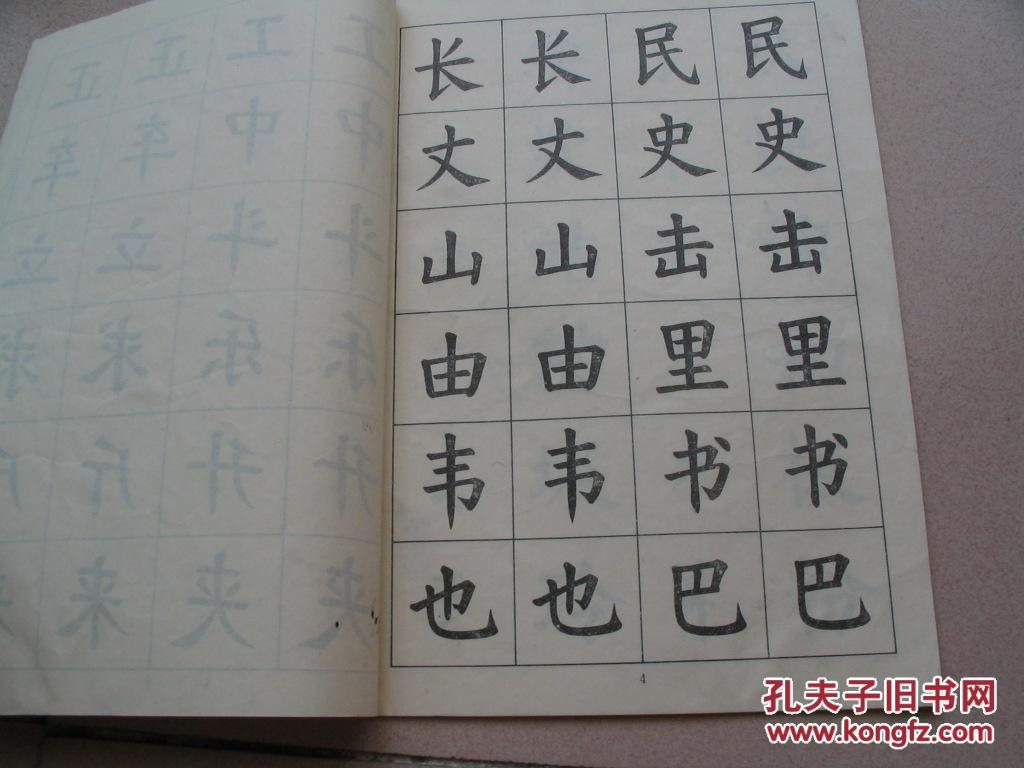 正 正 工 工
车 车 中 中
立 立 斗 斗
求 求 乐 乐
斤 升 升
来 夹 夹
长 长 民 民
丈 丈 史 史
山 山 击 击
由 由 里 里
韦 韦 书 书
也 也 巴 巴
4
孔夫子旧书网
www.kongfz.com